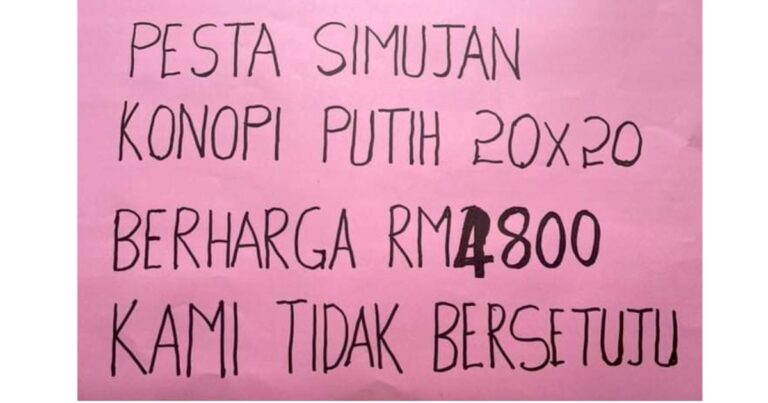 PESTA SIMUJAN
KONOPI PUTIH 20X20
BERHARGA RM4800
KAMI TIDAK BERSETUJU